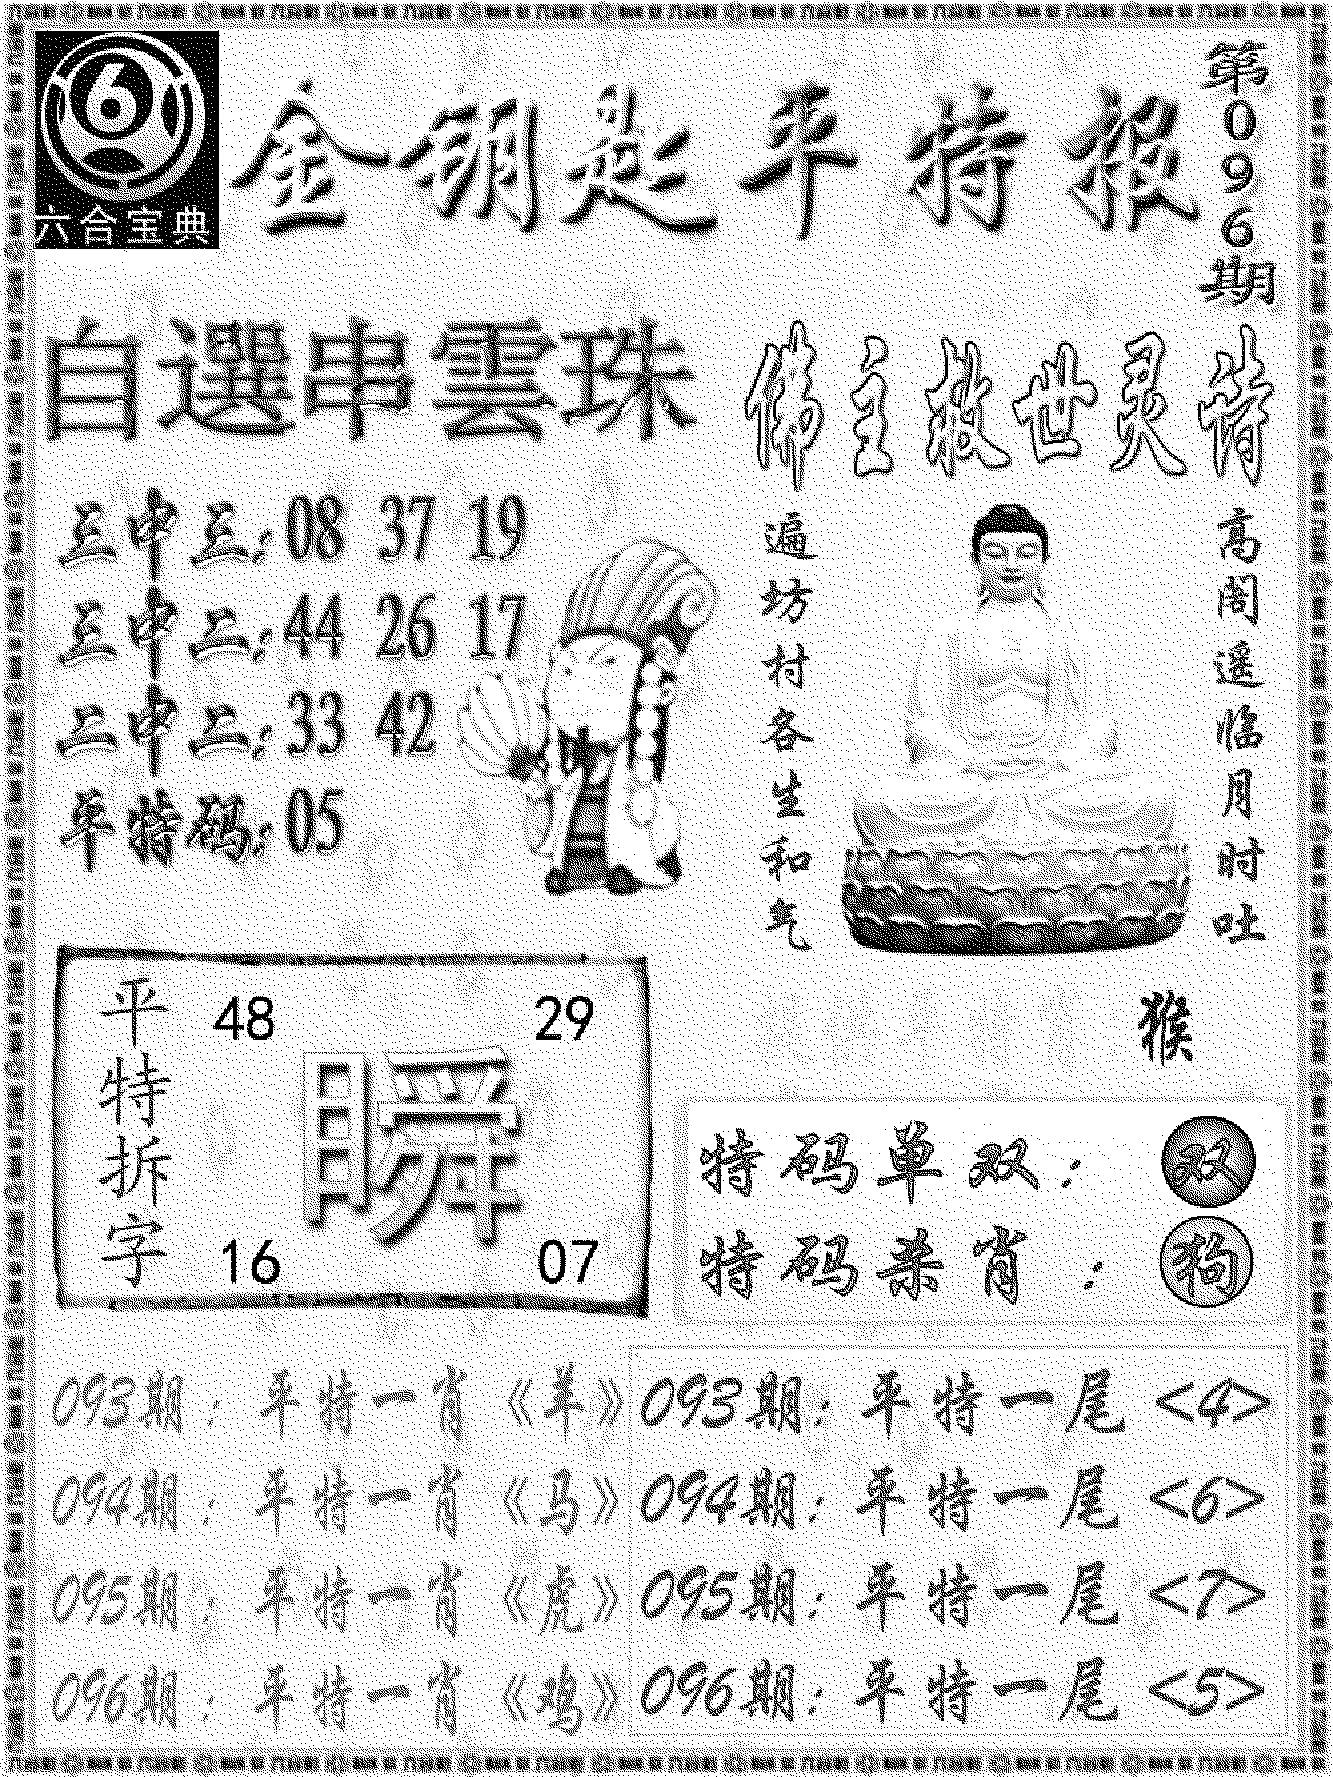 六合宝典
金钥匙平特报
第096期
自選串雲珠
三中三:08 37 19
三中二:44 26 17
二中二:33 42
平特码:05
佛主救世灵诗
高阁遥临月时吐
遍坊村各生和气
猴
平特拆字
48 29
瞬
16 07
特码单双:双
特码杀肖:狗
093期:平特一肖《羊》
094期:平特一肖《马》
095期:平特一肖《虎》
096期:平特一肖《鸡》
093期:平特一尾<4>
094期:平特一尾<6>
095期:平特一尾<7>
096期:平特一尾<5>